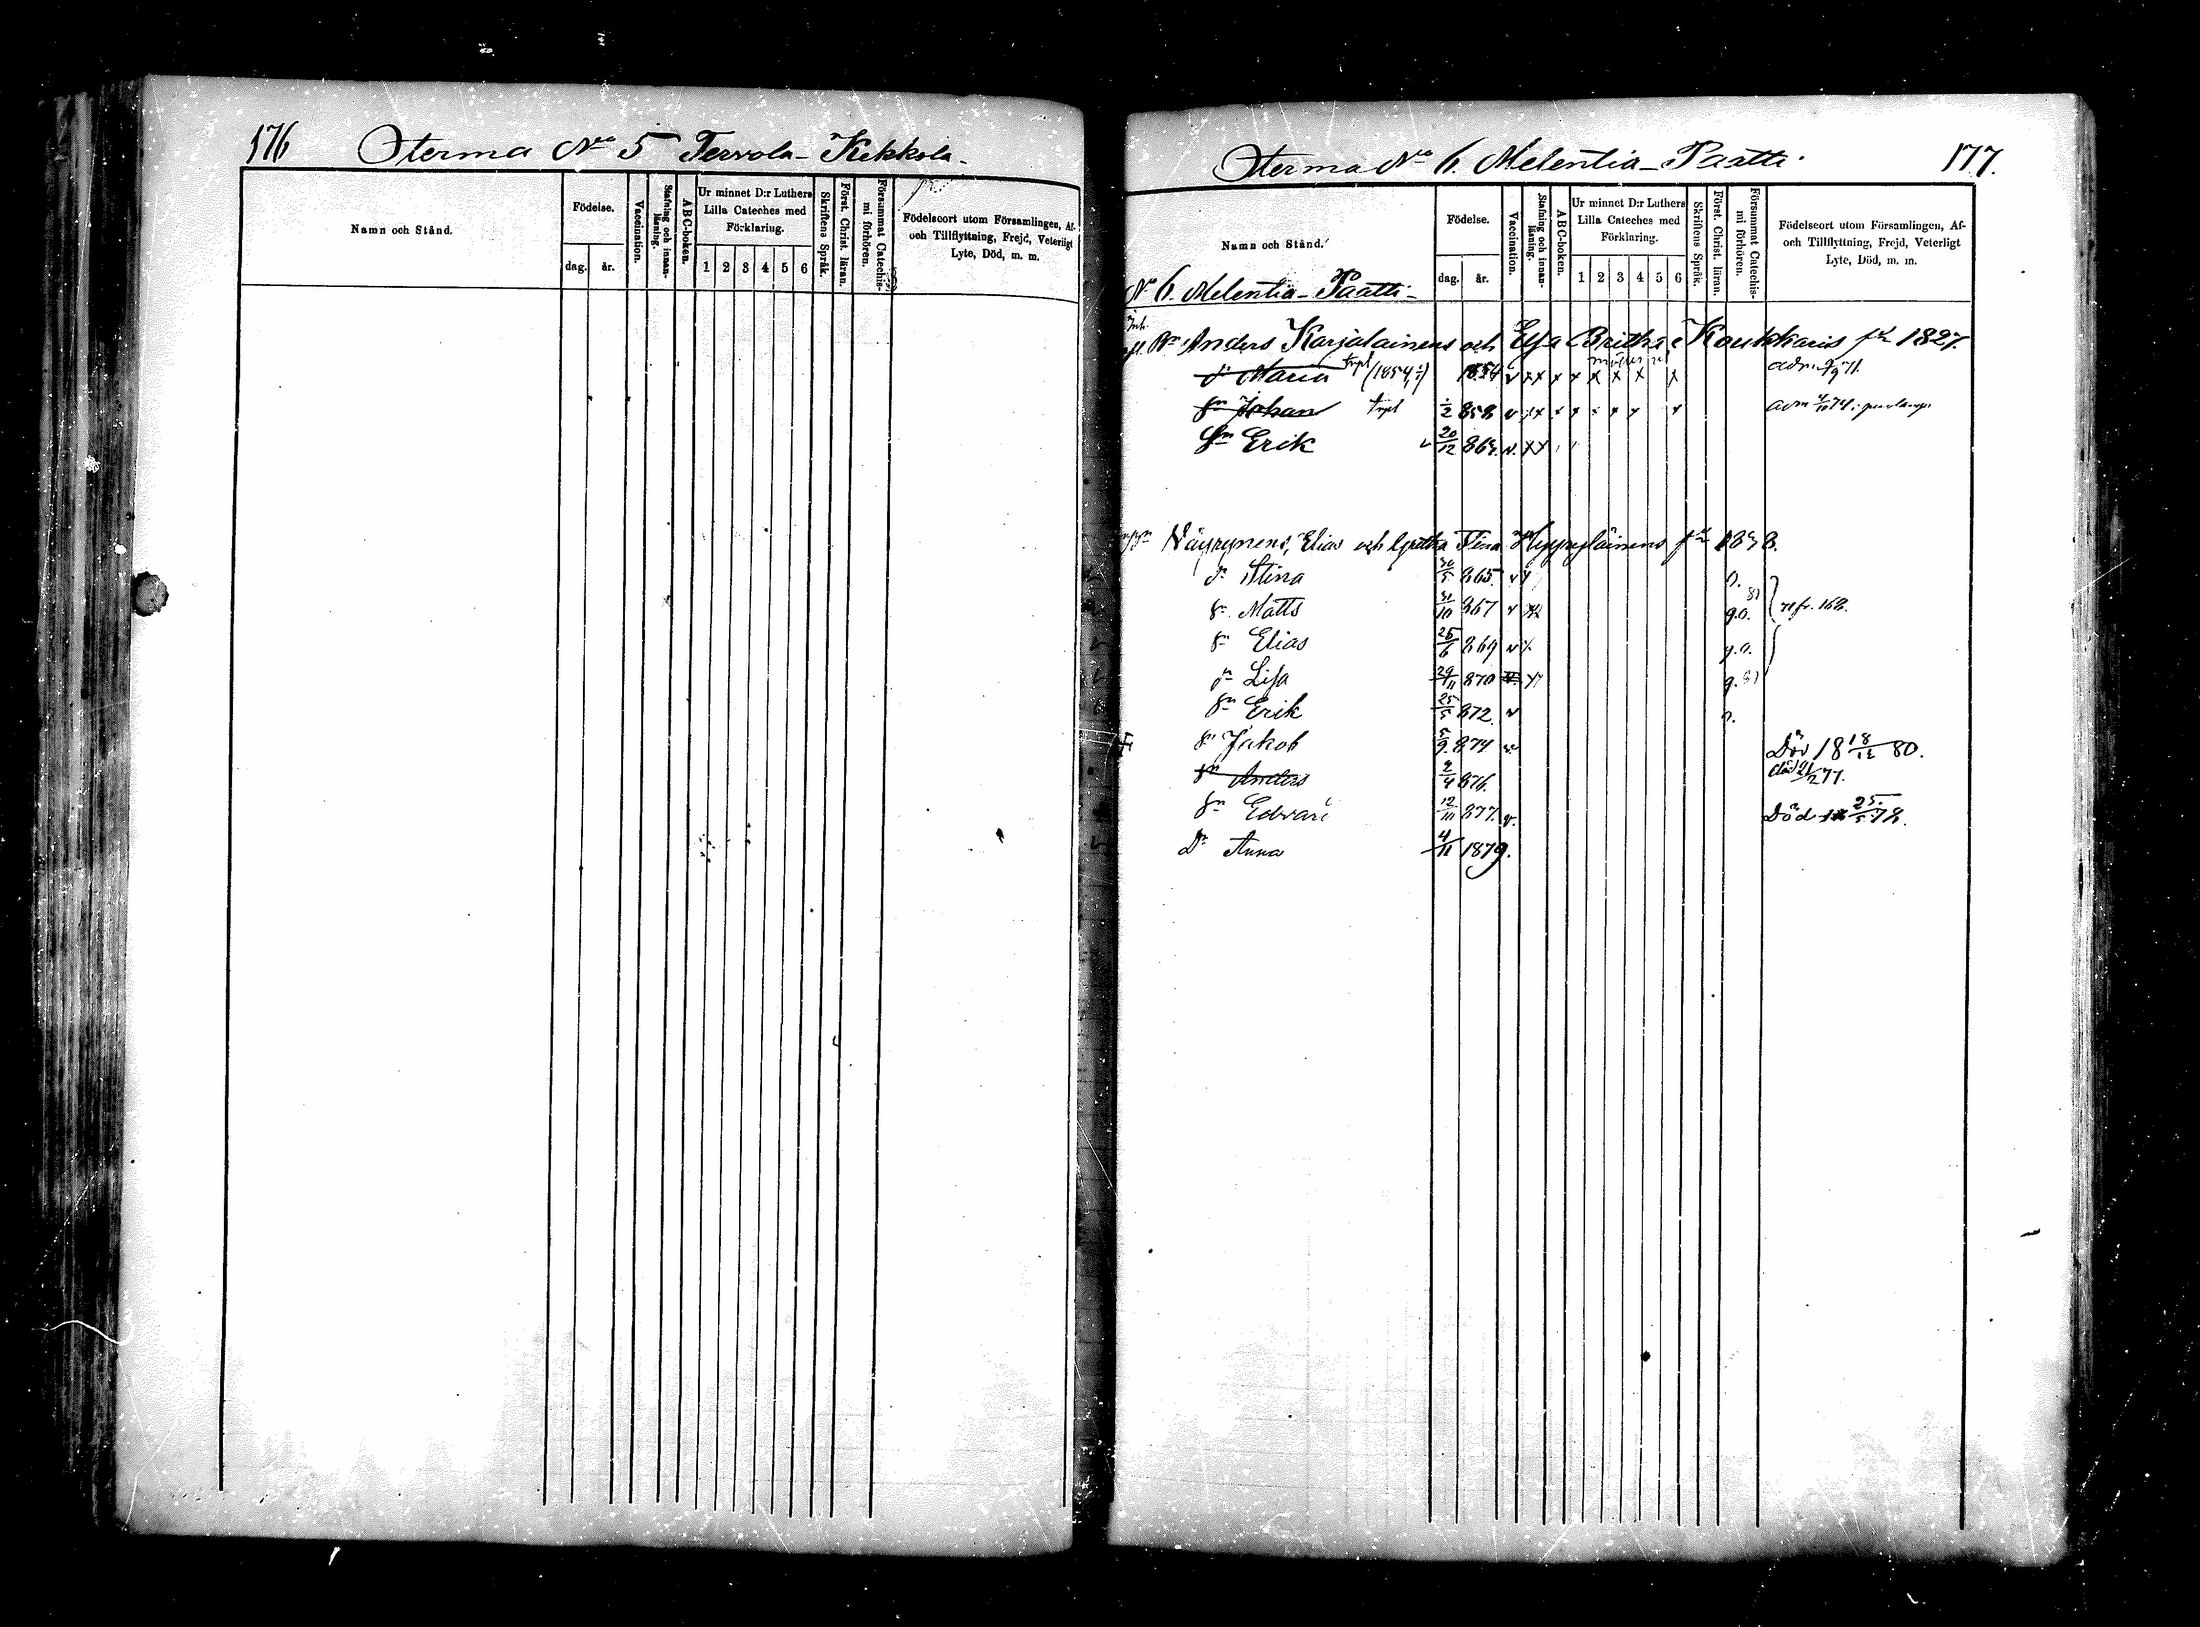 176 Oterma No 5 Tervola-Kekkola-
Namn och Stånd.
Födelse.
dag. år.
Vaccination.
Stafning och innan-läsning.
ABC-boken.
Ur minnet D:r Luthers
Lilla Cateches med
Förklaring.
1 2 3 4 5 6
Skriftens Språk.
Först. Christ. läran.
Försummat Catechis-mi förhören.
Födelseort utom Församlingen, Af-
och Tillflyttning, Frejd, Veterligt
Lyte, Död, m. m.
Oterma No 6. Melentia-Paatti. 177.
Namn och Stånd.
Födelse.
dag. år.
Vaccination.
Stafning och innan-läsning.
ABC-boken.
Ur minnet D:r Luthers
Lilla Cateches med
Förklaring.
1 2 3 4 5 6
Skriftens Språk.
Först. Christ. läran.
Försummat Catechis-mi förhören.
Födelseort utom Församlingen, Af-
och Tillflyttning, Frejd, Veterligt
Lyte, Död, m. m.
No 6. Melentia-Paatti-
Anders Karjalainens och Elsa Britha Koukkaris 1827.
dr Maria 1854 v
sn Johan 858 v
sn Erik 20/12 v.
Väyrynens, Elias och Gretha Stina
dr Stina 30/5 865. v
sn Matts 31/10 867 v g.a. 81 168.
sn Elias 25/6 869 v g.a.
dr Lisa 29/11 870 v g. 81
sn Erik 25/5 872. v
sn Jakob 5/9 874 v Död 18 18/12 80.
sn Anders 2/4 876. död 77.
sn Edvard 12/10 877. v. Död 25/5 78.
Dr Anna 4/11 1879.